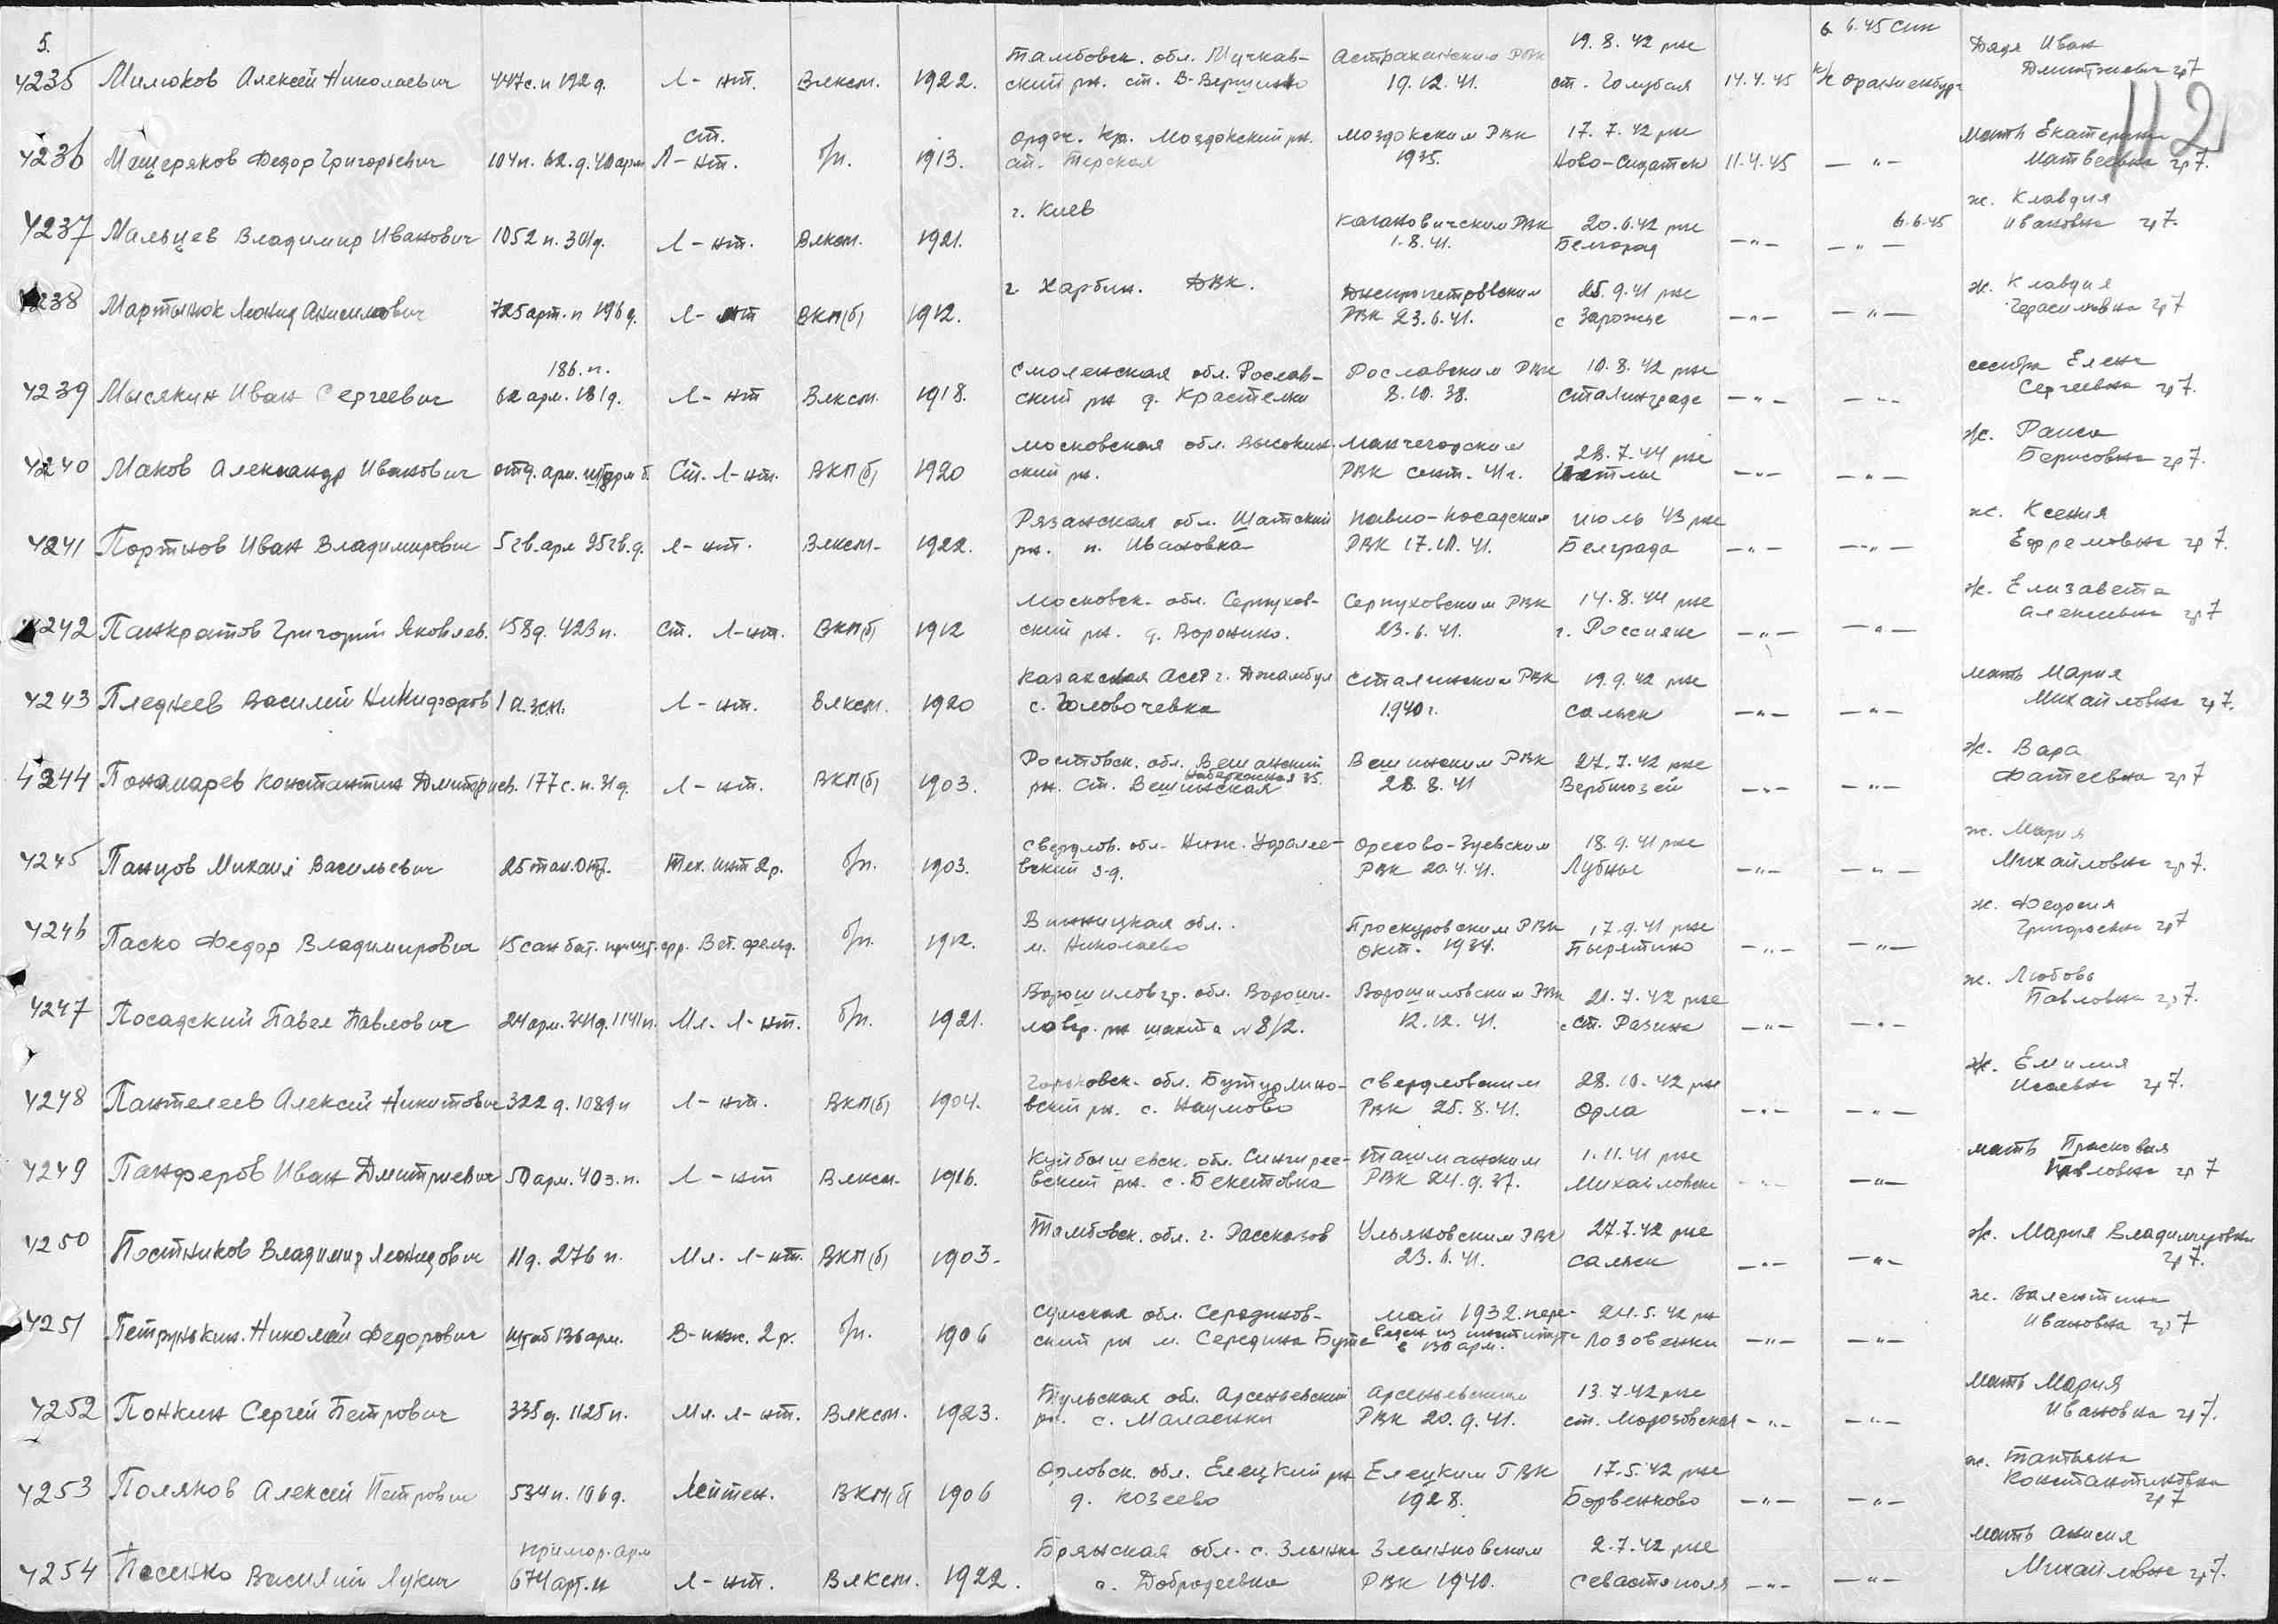 5.
112
4235 Милюков Алексей Николаевич 447 с.п 192 д. Л-нт. Влксм. 1922. Тамбовск. обл. Мучкав- Астраханским РВК 19.8.42 рке 6.6.45 СПП Дядя Иван
ский рн. ст. В- 19.12.41. ст. Голубая 14.4.45 к/л Ораниенбург Дмитриевич гр7
4236 Мащеряков Федор Григорьевич 104 п. 62.д. 40 арм ст. Л-нт. б/п. 1913. Ордж. Кр. Моздокский рн. Моздокским РВК 17.7.42 рке Мать Екатерина
ст. Терская 1935. Ново- 11.4.45 —"— Матвеевна гр7.
4237 Мальцев Владимир Иванович 1052 п. 301д. Л-нт. Влксм. 1921. г. Киев Кагановичским РВК 20.6.42 рке 6.6.45 ж. Клавдия
1.8.41. Белгород —"— —"— Ивановна гр7.
4238 Мартынюк Леонид Анисимович 725 арт. п 196 д. Л-нт ВКП(б) 1912. г. Харбин. ДВК. Днепропетровским 25.9.41 рке ж. Клавдия
РВК 23.6.41. с —"— —"— Герасимовна гр7
4239 Мысякин Иван Сергеевич 186.п. 62 арм. 181д. Л-нт Влксм. 1918. Смоленская обл. Рослав- Рославским РВК 10.8.42 рке сестра Елена
ский рн д. 8.10.38. Сталинграде —"— —"— Сергеевна гр7.
4240 Маков Александр Иванович отд. арм. б. Ст. Л-нт. ВКП(б) 1920 Московская обл. Высокин- 28.7.44 рке ж. Раиса
ский рн. РВК сент. 41г. —"— —"— Борисовна гр7.
4241 Портнов Иван Владимирович 5 гв. арм 95 гв. д. Л-нт. Влксм. 1922. Рязанская обл. Шатский Павло-Посадским июль 43 рке ж. Ксения
рн. п. Ивановка РВК 17.10.41. Белграда —"— —"— Ефремовна гр7.
4242 Панкратов Григорий Яковлев. 158д. 423 п. Ст. Л-нт. ВКП(б) 1912 Московск. обл. Серпухов- Серпуховским РВК 14.8.44 рке ж. Елизавета
ский рн. д. Воронино. 23.6.41. г. Россияне —"— —"— Алексеевна гр7
4243 Пледнеев Василий Никифоров 1 а.зсп. Л-нт. Влксм. 1920 Казахская АССР г. Джамбул Сталинским РВК 19.9.42 рке мать Мария
с. Головочевка 1940г. Сальск —"— —"— Михайловна гр7.
4244 Пономарев Константин Дмитриев. 177 с.п. 31д. Л-нт. ВКП(б) 1903. Ростовск. обл. Вешанский Вешинским РВК 27.7.42 рке ж. Вара
рн. ст. Вешинская Набережная 35. 28.8.41 —"— —"— Фатеевна гр7
4245 Панцов Михаил Васильевич 25 тан. Отд. Тех. инт 2р. б/п. 1903. Свердлов. обл. Ниж. Орехово-Зуевским 18.9.41 рке ж. Мария
вский з-д. РВК 20.4.41. Лубны —"— —"— Михайловна гр7.
4246 Паско Федор Владимирович 15 сан бат. Вет. фельд. б/п. 1912. Винницкая обл. Проскуровским РВК 17.9.41 рке ж. Федосия
м. Николаево окт. 1934. Пырятино —"— —"— Григорьевна гр7
4247 Посадский Павел Павлович 24 арм. 341д. 1141п. Мл. Л-нт. б/п. 1921. Ворошиловгр. обл. Вороши- Ворошиловским РВК 21.7.42 рке ж. Любовь
ловгр. рн шахта № 8/2. 12.12.41. ст. Разина —"— —"— Павловна гр7.
4248 Пантелеев Алексей Никитович 322 д. 1089 п Л-нт. ВКП(б) 1904. Горьковск. обл. Бутурлино- Свердловским 28.10.42 рке ж. Емилия
вский рн. с. Наумово РВК 25.8.41. Орла —"— —"— Исаевна гр7.
4249 Панферов Иван Дмитриевич 50 арм. 40 з.п. Л-нт Влксм. 1916. Куйбышевск. обл. Сингилее- 1.11.41 рке мать Прасковия
вский рн. с. Бекетовка РВК 24.9.37. Михайловки —"— —"— Павловна гр7
4250 Постников Владимир Леонидович 11д. 276 п. Мл. Л-нт. ВКП(б) 1903. Тамбовск. обл. г. Рассказов Ульяновским РВК 27.7.42 рке ж. Мария Владимировна
23.6.41. Сальск —"— —"— гр7.
4251 Петрунькин. Николай Федорович штаб 136 арм. В-инж. 2р. б/п. 1906 Сумская обл. Серединов- май 1932. пере- 24.5.42 рк ж. Валентина
ский рн м. Середина Буте веден из института в 136 арм. Лозовенки —"— —"— Ивановна гр7
4252 Понкин Сергей Петрович 335д. 1125 п. Мл. Л-нт. Влксм. 1923. Тульская обл. Арсеньевский Арсеньевским 13.7.42 рке Мать Мария
рн. с. Маласнки РВК 20.9.41. ст. Морозовская —"— —"— Ивановна гр7.
4253 Поляков Алексей Петрович 534 п. 106д. Лейтен. ВКП(б) 1906 Орловск. обл. Елецкий рн Елецким ГВК 17.5.42 рке ж. Татьяна
д. Козеево 1928. Борвенково —"— —"— Константиновна гр7
4254 Посенко Василий Лукич Примор. арм 674 арт. п Л-нт. Влксм. 1922. Брянская обл. с. Злынка Злынковским 2.7.42 рке мать Анисия
Добродеевка РВК 1940. Севастополя —"— —"— Михайловна гр7.